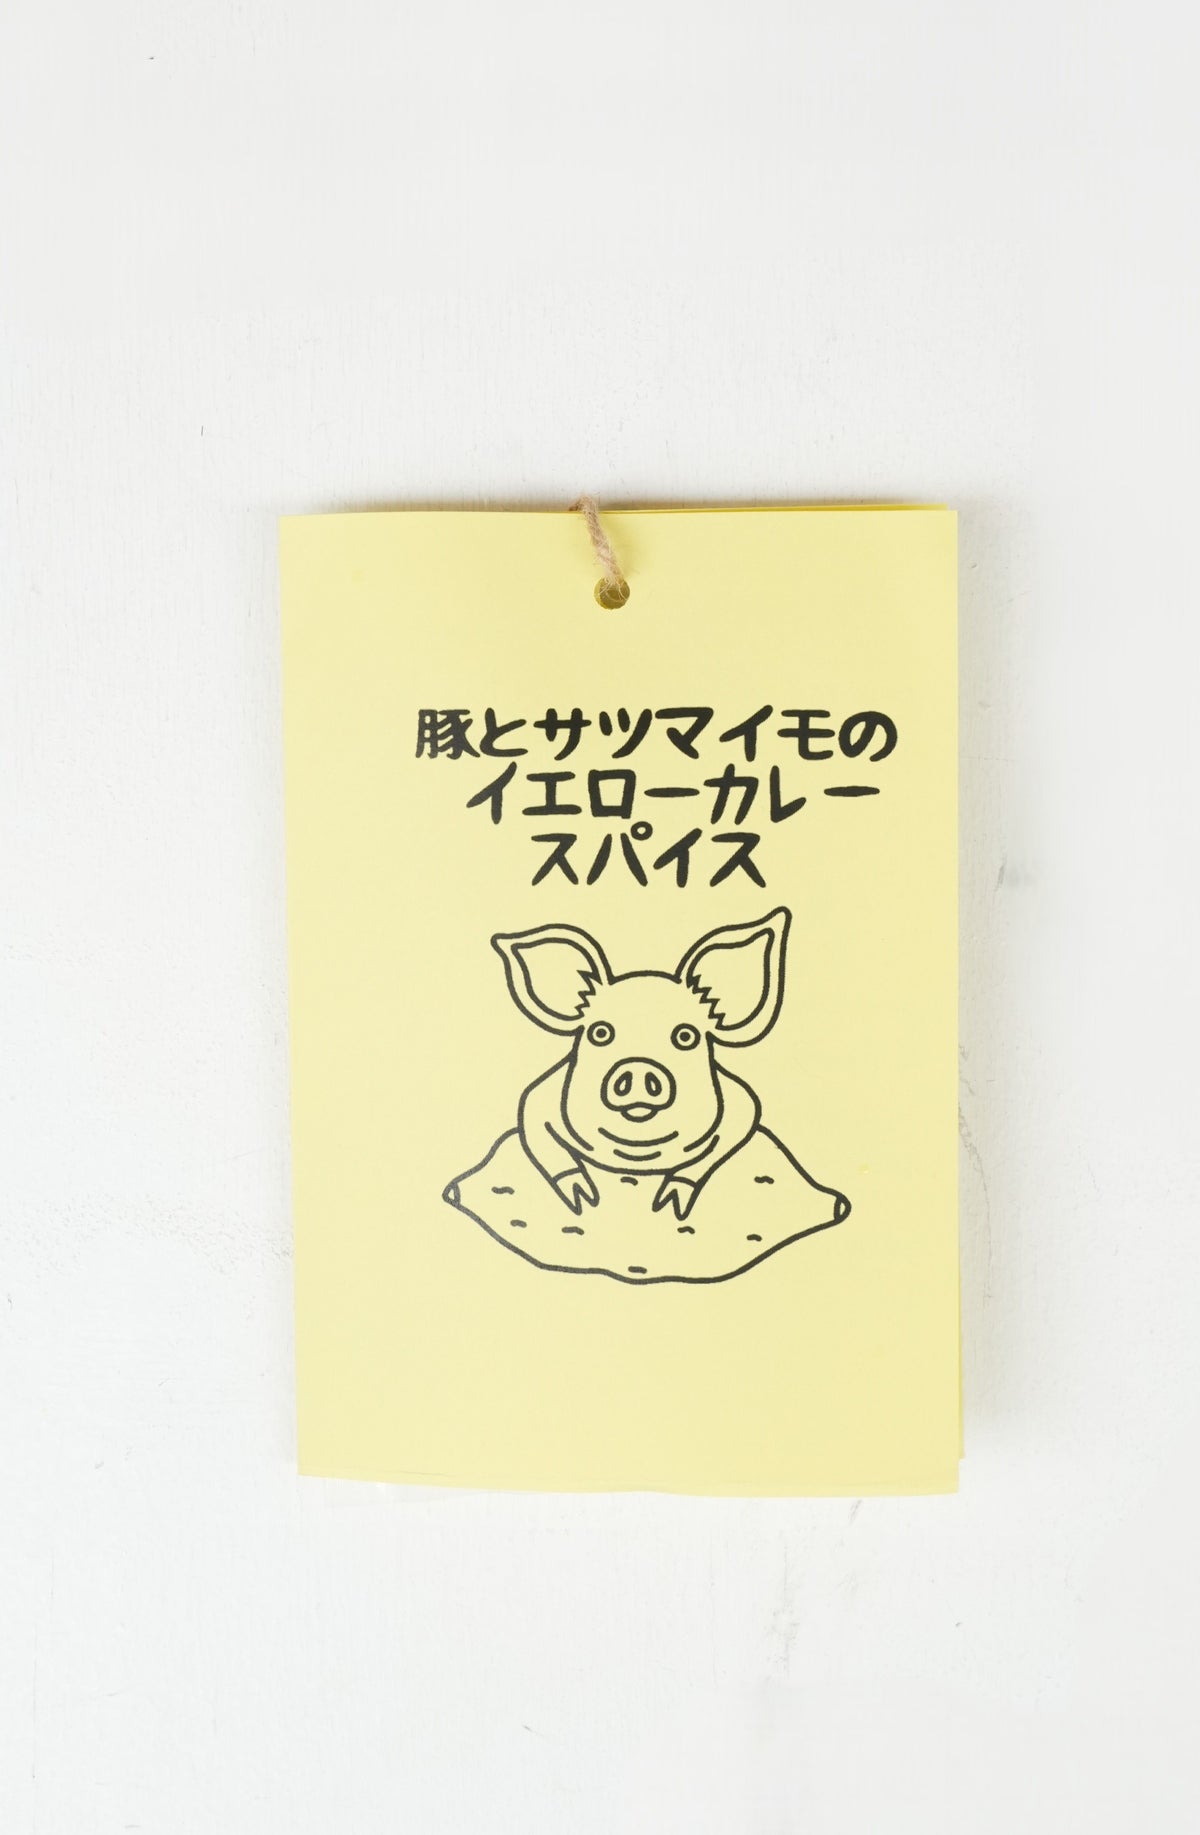 豚とサツマイモの
イエローカレー
スパイス